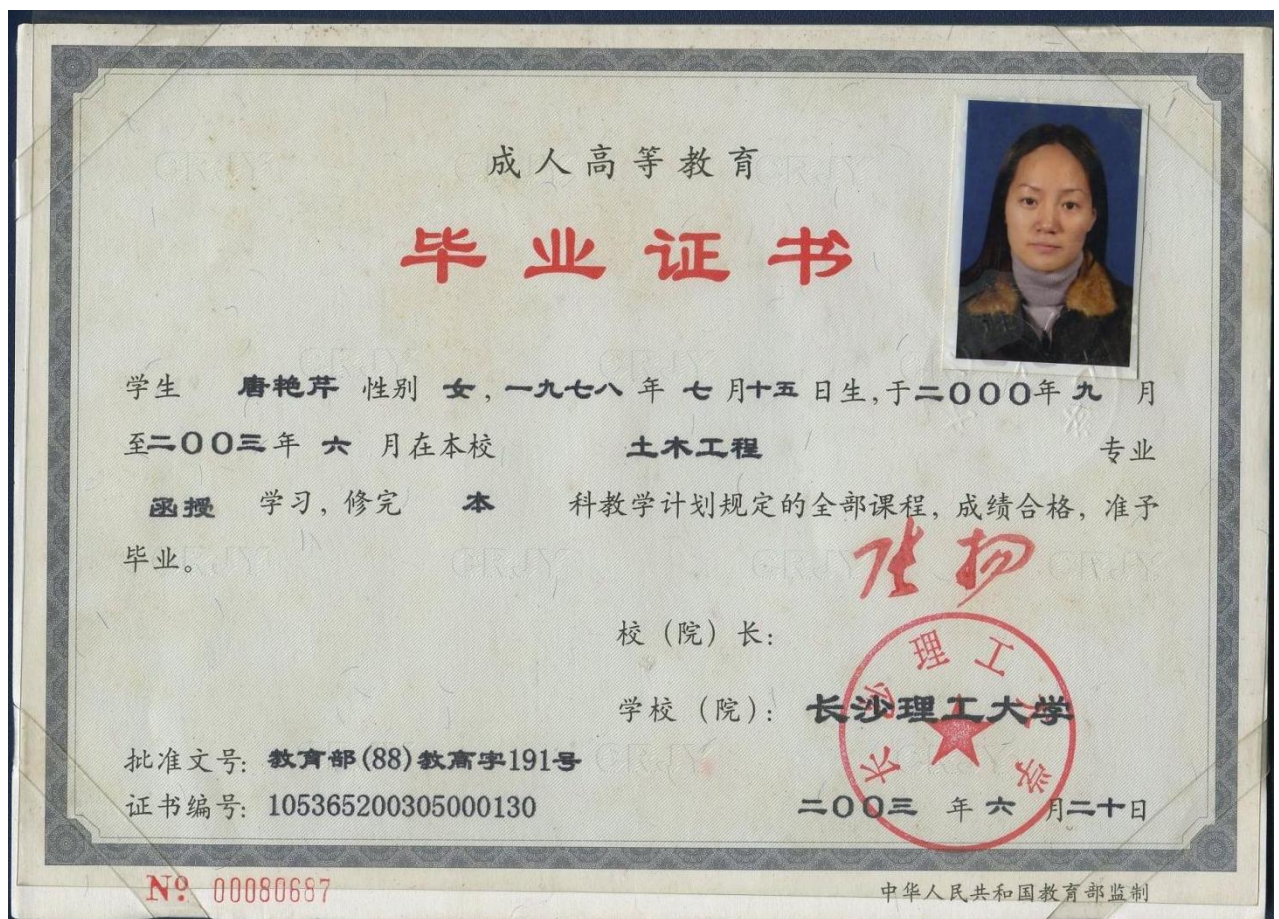 成人高等教育
毕业证书
学生 唐艳芹 性别 女，一九七八 年 七 月十五 日生，于二〇〇〇年 九 月
至二〇〇三年 六 月在本校 土木工程 专业
函授 学习，修完 本 科教学计划规定的全部课程，成绩合格，准予
毕业。
张扬
校（院）长：
长沙理工大学
学校（院）： 长沙理工大学
批准文号：教育部(88)教高字191号
证书编号：105365200305000130
二〇〇三 年 六 月二十日
№ 00080687
中华人民共和国教育部监制